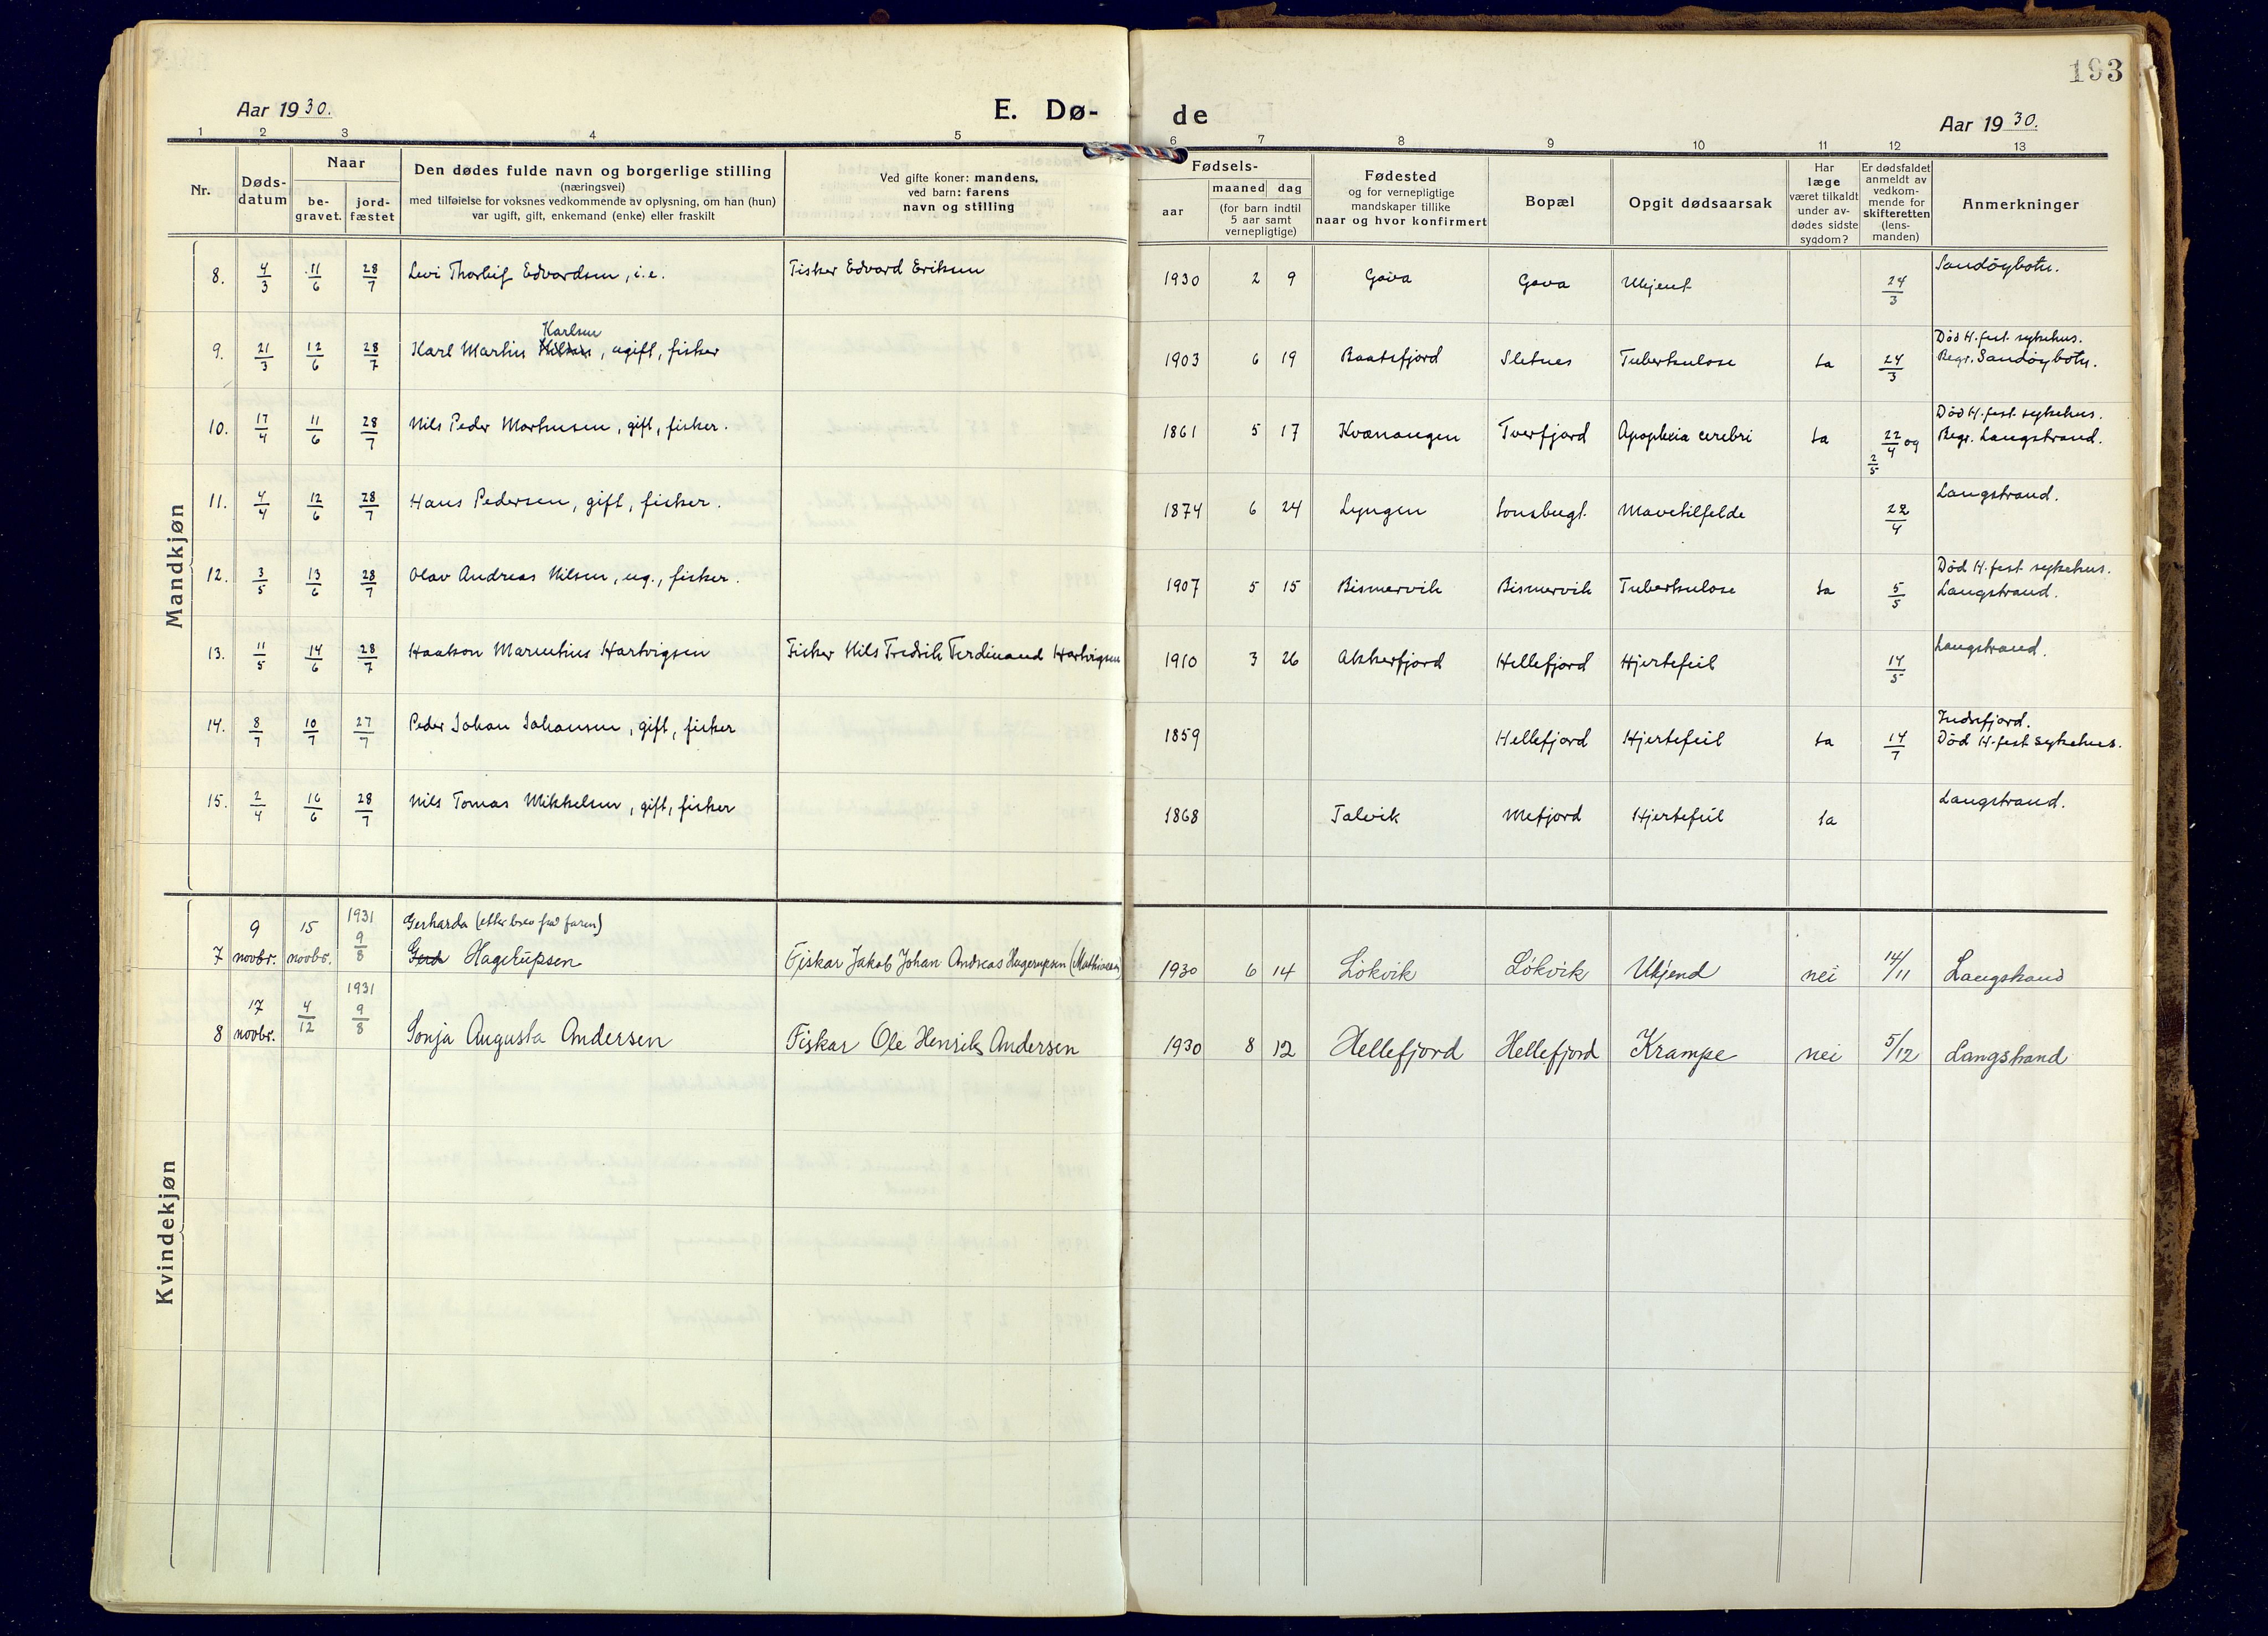 193
Aar 1930.
E. Dø-
de
Aar 1930.
1 2 3 4 5 6 7 8 9 10 11 12 13
Nr.
Døds-
datum
Naar
be-
gravet.
jord-
fæstet
Den dødes fulde navn og borgerlige stilling
(næringsvei)
med tilføielse for voksnes vedkommende av oplysning, om han (hun)
var ugift, gift, enkemand (enke) eller fraskilt
Ved gifte koner: mandens,
ved barn: farens
navn og stilling
Fødsels-
aar
maaned dag
(for barn indtil
5 aar samt
vernepligtige)
Fødested
og for vernepligtige
mandskaper tillike
naar og hvor konfirmert
Bopæl
Opgit dødsaarsak
Har
læge
været tilkaldt
under av-
dødes sidste
sygdom?
Er dødsfaldet
anmeldt av
vedkom-
mende for
skifteretten
(lens-
manden)
Anmerkninger
Mandkjøn
8. 4/3 11/6 28/7 Levi Thorleif Edvardsen, i.e. Fisker Edvard Eriksen 1930 2 9 Gåva Gåva Ukjent 24/3 Sandøybotn.
Karlsen
Død H.fest sykehus.
9. 21/3 12/6 28/7 Karl Martin Nilsen, ugift, fisker 1903 6 19 Baatsfjord Sletnes Tuberkulose Ja 24/3 Begr. Sandøybotn.
Død H.fest. sykehus.
10. 17/4 11/6 28/7 Nils Peder Markusen, gift, fisker. 1861 5 17 Kvænangen Tverfjord Apoplexia cerebri Ja 22/4 og 2/5 Begr. Langstrand.
11. 4/4 12/6 28/7 Hans Pedersen, gift, fisker. 1874 6 24 Lyngen Lonsbugt. Mavetilfelde 22/4 Langstrand.
Død H.fest sykehus.
12. 3/5 13/6 28/7 Olav Andreas Nilsen, ug., fisker. 1907 5 15 Bismervik Bismervik Tuberkulose Ja 5/5 Langstrand.
13. 11/5 14/6 28/7 Haakon Marentius Hartvigsen Fisker Nils Fredrik Ferdinand Hartvigsen 1910 3 26 Akkerfjord Hellefjord Hjertefeil 14/5 Langstrand.
Indrefjord.
14. 8/7 10/7 27/7 Peder Johan Johansen, gift, fisker 1859 Hellefjord Hjertefeil Ja 14/7 Død H.fest sykehus.
15. 2/4 16/6 28/7 Nils Tomas Mikkelsen, gift, fisker 1868 Talvik Mefjord Hjertefeil Ja Langstrand.
Kvindekjøn
9 15 1931 Gerharda (etter brev fra faren)
7 novbr. novbr. 9/8 Gerd Hagerupsen Fiskar Jakob Johan Andreas Hagerupsen (Mathiassen) 1930 6 14 Lökvik Lökvik Ukjend nei 14/11 Langstrand
17 4/12 1931
8 novbr. 9/8 Sonja Augusta Andersen Fiskar Ole Henrik Andersen 1930 8 12 Hellefjord Hellefjord Krampe nei 5/12 Langstrand